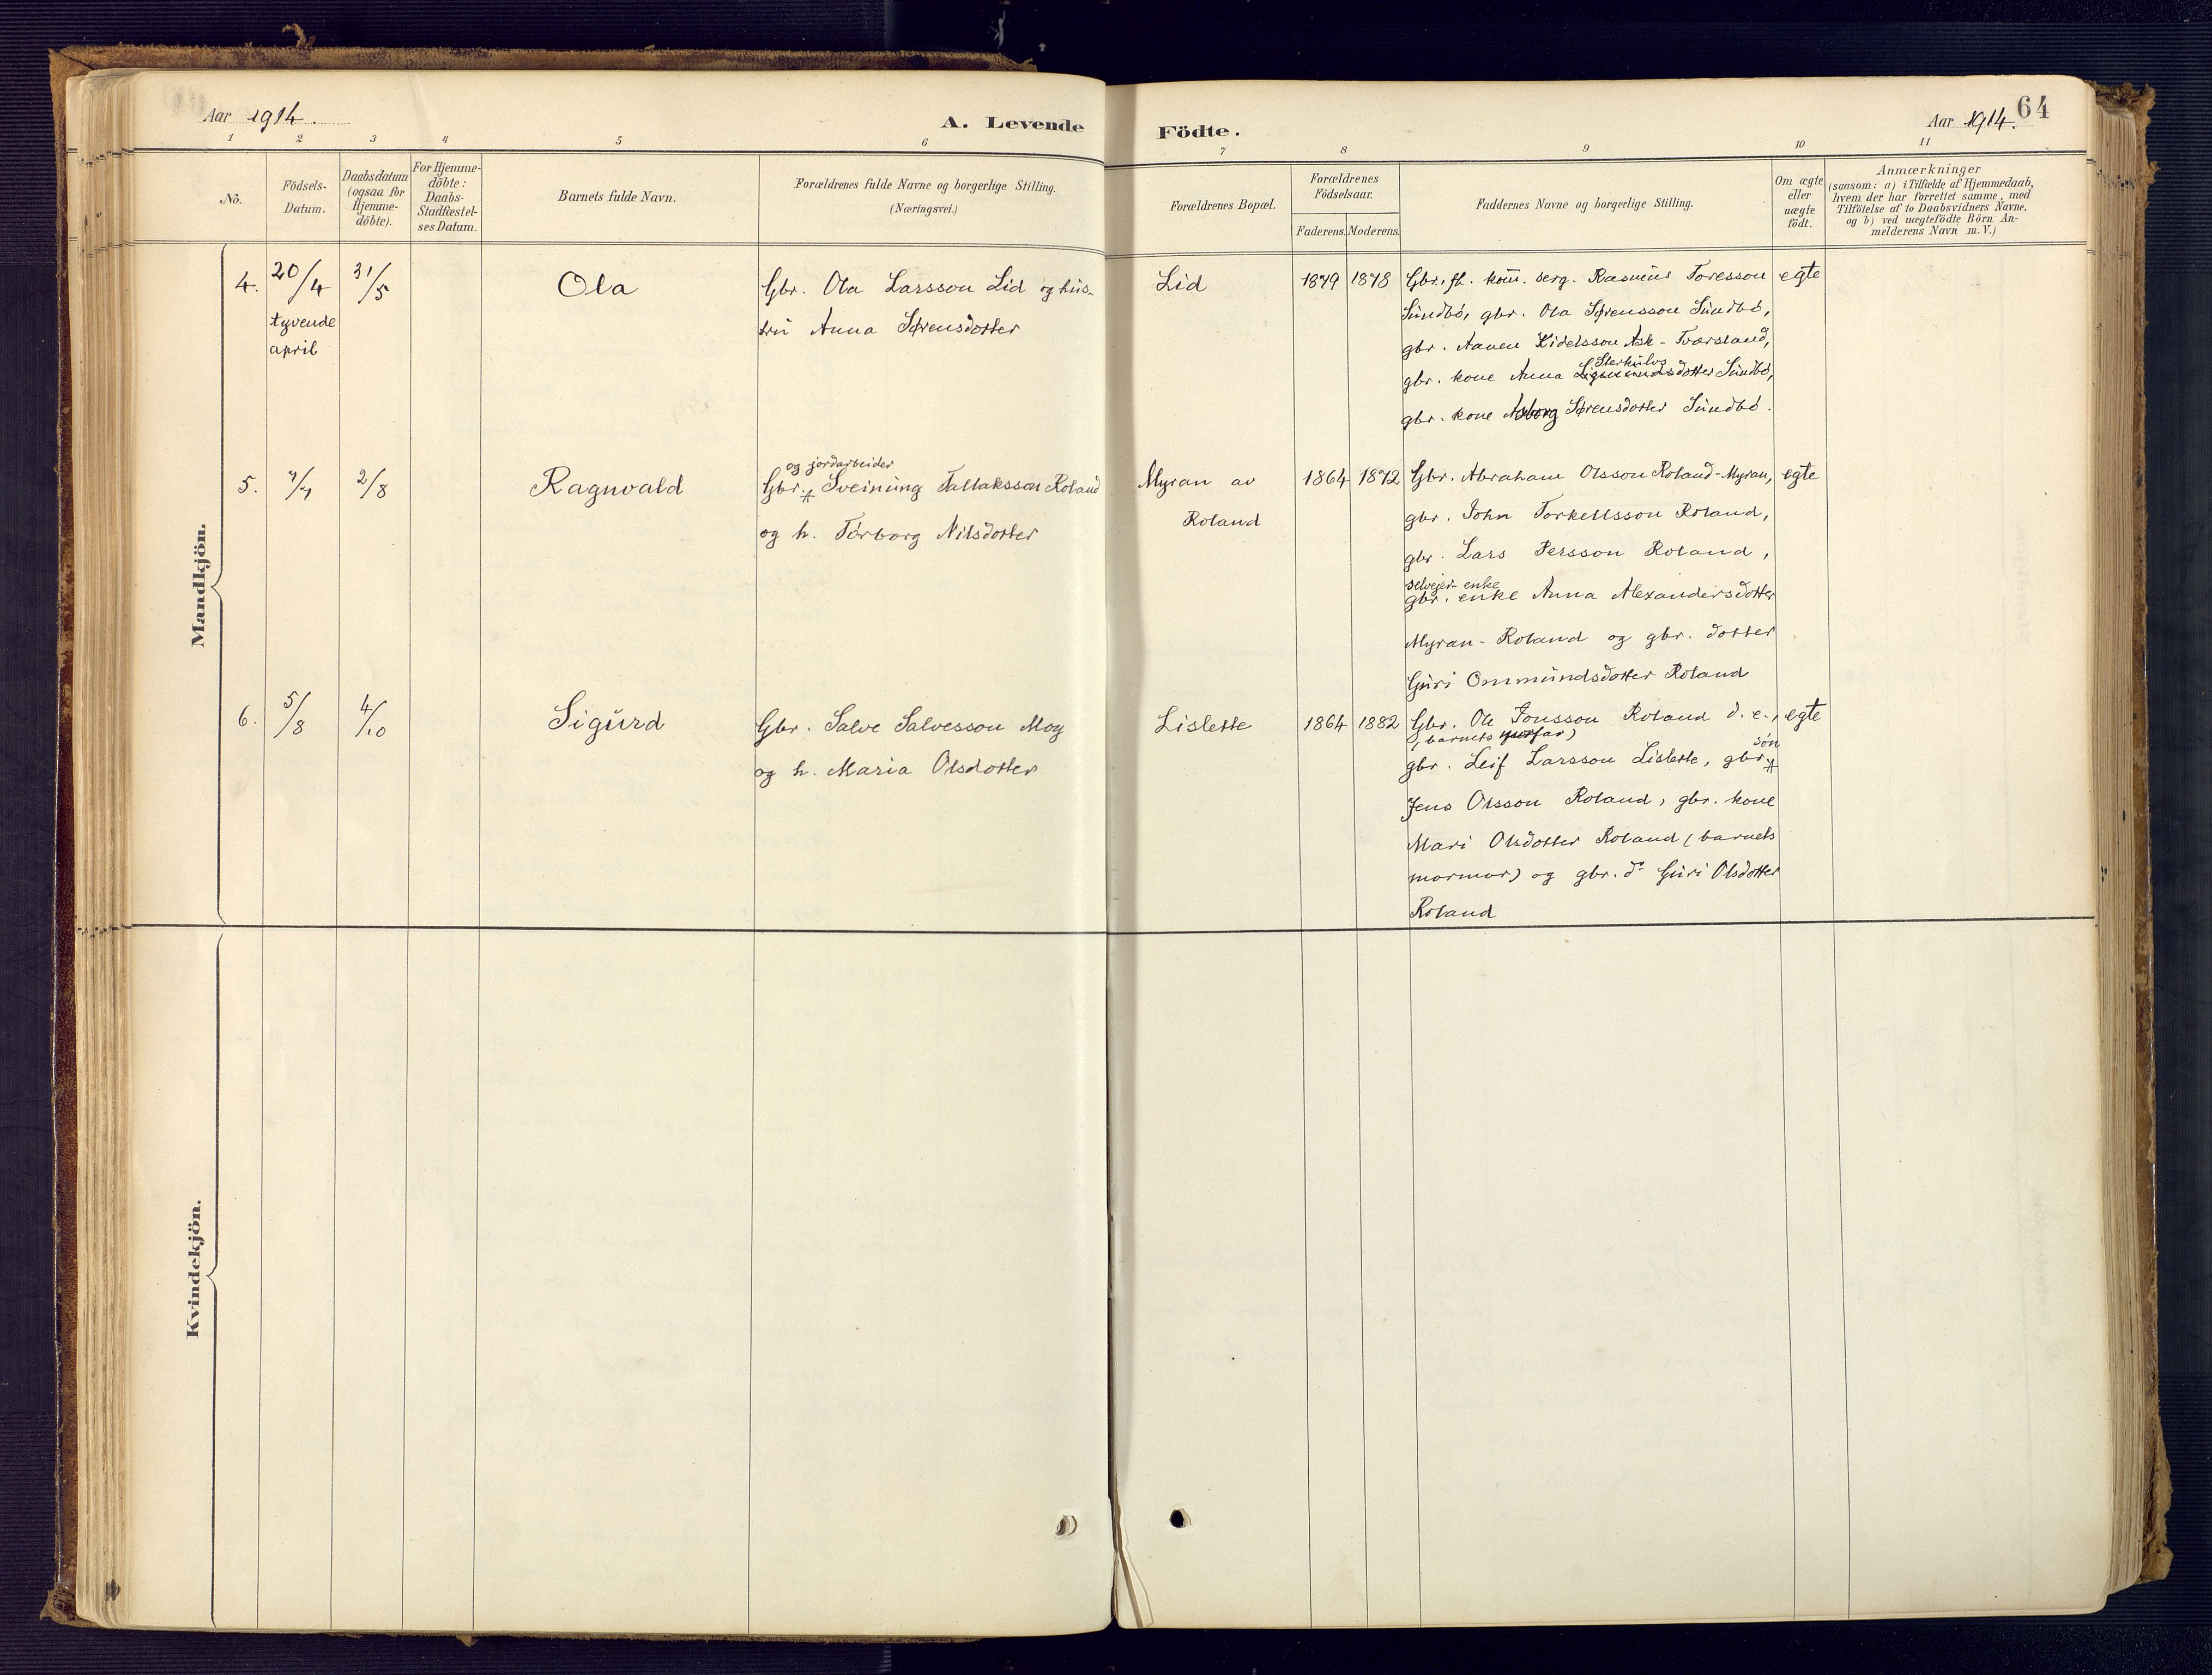 Aar 1914.
A. Levende Födte.
Aar 1914.
64
1 2 3 4 5 6 7 8 9 10 11
Nö.
Födsels-
Datum.
Daabsdatum
(ogsaa for
Hjemme-
döbte).
For Hjemme-
döbte:
Daabs-
Stadfæstel-
ses Datum.
Barnets fulde Navn.
Forældrenes fulde Navne og borgerlige Stilling.
(Næringsvei.)
Forældrenes Bopæl.
Forældrenes
Födselsaar.
Faderens. Moderens.
Faddernes Navne og borgerlige Stilling.
Om ægte
eller
uægte
födt.
Anmærkninger
(saasom: a) i Tilfælde af Hjemmedaab,
hvem der har forrettet samme, med
Tilföielse af to Daabsvidners Navne.
og b) ved uægtefödte Börn An-
melderens Navn m. V.)
Mandkjön.
4.
20/4
tyvende
april
31/5
Ola
Gbr. Ola Larsson Lid og hus-
tru Anna Sørensdotter
Lid
1879 1878
Gbr. fh. kom. serg. Rasmus Toresson
Sundbø, gbr. Ola Sørensson Sundbø,
gbr. Aanen Kidelsson Ask-Tvørsland,
Sterkulvs
gbr. kone Anna Sigmundsdotter Sundbø,
gbr. kone Asborg Sørensdotter Sundbø.
egte
5.
7/7
2/8
Ragnvald
og jordarbeider
Gbr. Sveinung Tallaksson Roland
og h. Tørborg Nilsdotter
Myran av
Roland
1864 1872
Gbr. Abraham Olsson Roland-Myran,
gbr. John Torkellsson Roland,
gbr. Lars Persson Roland,
selveier-enke
gbr. enke Anna Alexandersdotter
Myran-Roland og gbr. dotter
Guri Ommundsdotter Roland
egte
6.
5/8
4/10
Sigurd
Gbr. Salve Salvesson Mog
og h. Maria Olsdotter
Lislette
1864 1882
Gbr. Ole Jonsson Roland d. e.,
(barnets morfar)
søn
gbr. Leif Larsson Lislette, gbr.
Jens Olsson Roland, gbr. kone
Mari Olsdotter Roland (barnets
mormor) og gbr. dr Guri Olsdotter
Roland
egte
Kvindekjön.